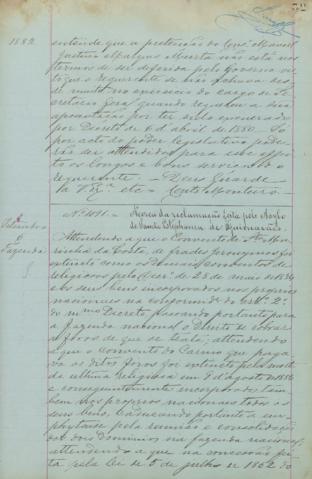 1882
entende que a pretenção do Cons.º Manuel
não está nos
termos de ser deferida pelo Governo
o requerente se não achava des
de muito no exercicio do cargo de Se
cretario Geral quando requereu a sua
aposentação por ter sido exonerado
por Decreto de 6 de abril de 1880. So
por acto do poder legislativo pode
rão ser attendidos para esse effei
to os longos e bons serviços do
requerente. – Deus Guarde
a V. Ex.ª etc –
Nº 1091. – Ácerca da reclamação feita pelo Asylo
de Santa Estephania de Guimarães
Fazenda
Attendendo a que o Convento de St.ª Ma
rinha da Costa, de frades
extincto como os demais Conventos de
religiosos pelo Decr.º de 28 de maio de 1834
e os seus bens incorporados nos proprios
nacionaes na conformid.e do art.º 2º
do m.mo Decreto passando portanto para
a fazenda nacional o direito de cobrar
o foros de que se trata; attendendo
a que o convento do Carmo que paga
va os ditos foros foi extincto pela morte
da ultima religiosa em 3 de agosto de 18
e conseguintemente incorporados tam
bem nos proprios nacionaes todos os
seus bens, caducando portanto a em
phyteuse pela reunião e consolidação
dos dois dominios na fazenda nacional,
attendendo a que na concessão fei
ta pela Lei de 5 de julho de 1862 do